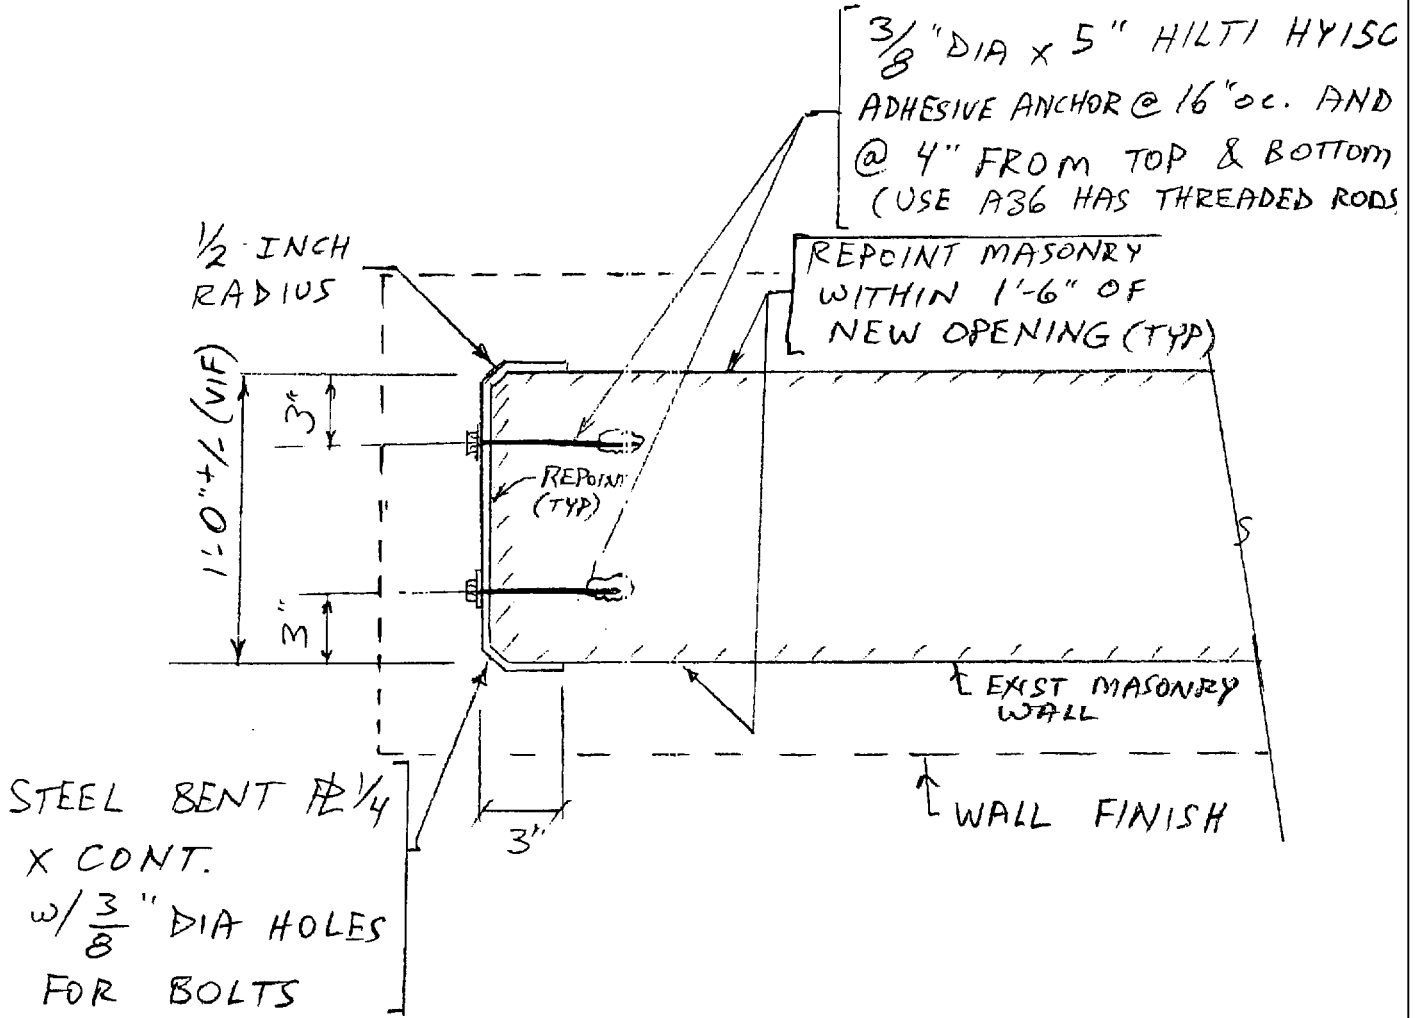 3/8" DIA x 5" HILTI HY150
ADHESIVE ANCHOR @ 16" oc. AND
@ 4" FROM TOP & BOTTOM
(USE A36 HAS THREADED RODS
1/2 INCH
RADIUS
REPOINT MASONRY
WITHIN 1'-6" OF
NEW OPENING (TYP)
1'-0" +/- (VIF)
3"
REPOINT
(TYP)
3"
S
EXIST MASONRY
WALL
STEEL BENT PL 1/4
X CONT.
w/ 3/8" DIA HOLES
FOR BOLTS
3"
WALL FINISH